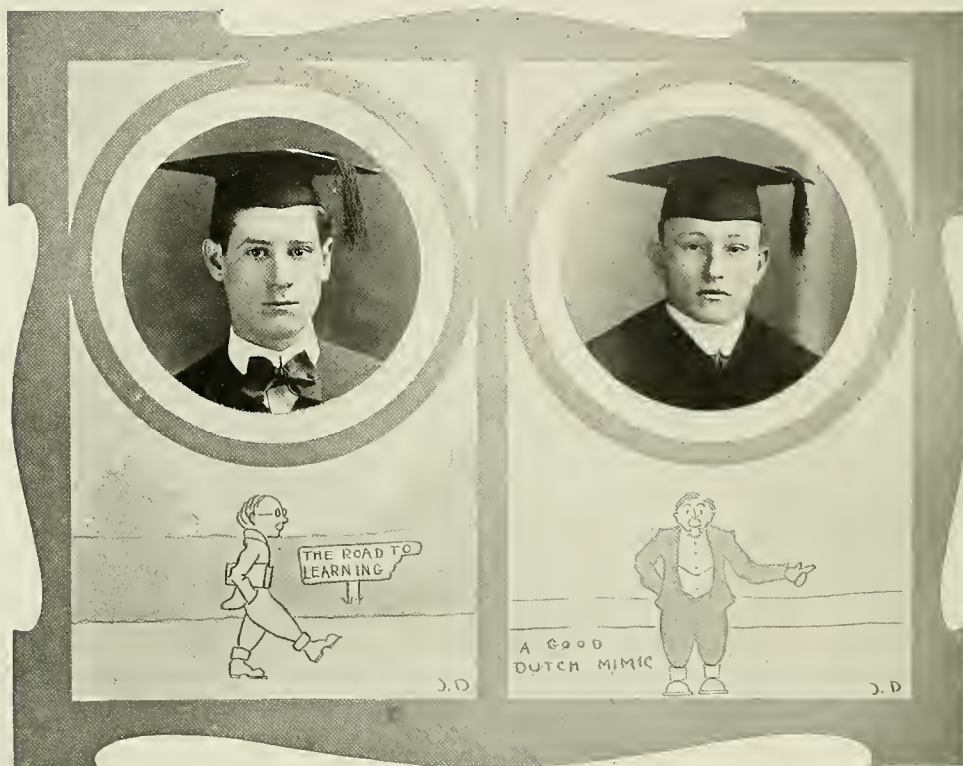 THE ROAD TO
LEARNING
J. D
A GOOD
DUTCH MIMIC
J. D